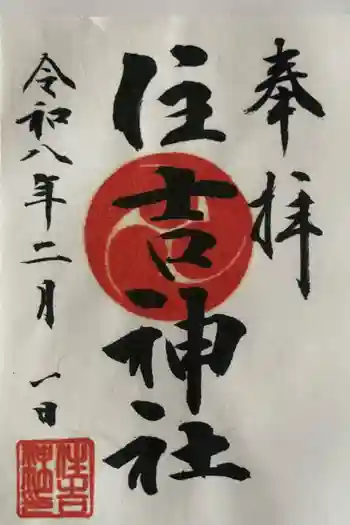 奉拝
住吉神社
令和八年二月一日
住吉
神社